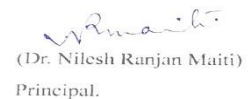 NRmaiti.
(Dr. Nilesh Ranjan Maiti)
Principal.